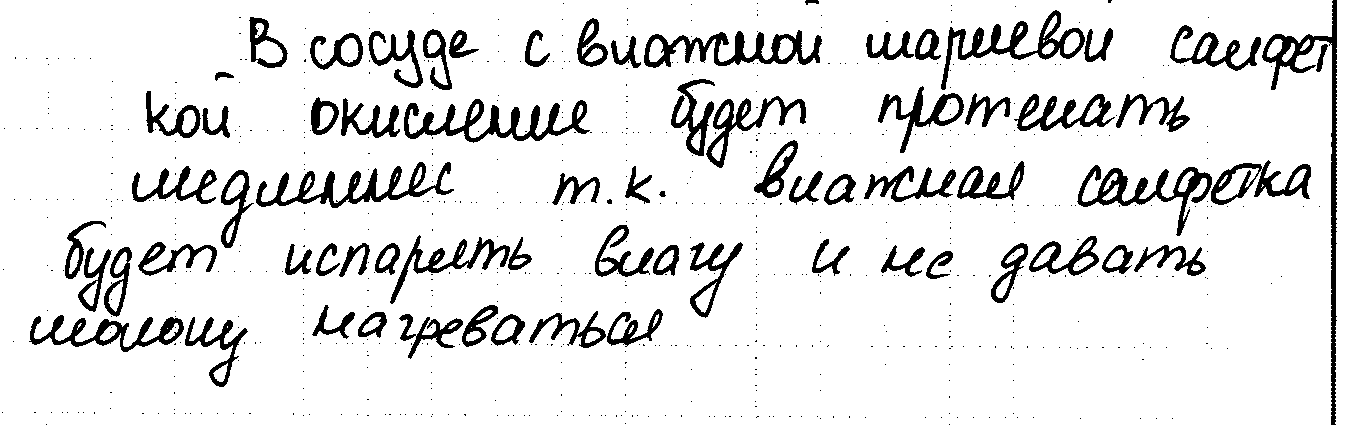 В сосуде с влажной марлевой салфет
кой окисление будет протекать
медленнее т.к. влажная салфетка
будет испарять влагу и не давать
молоку нагреваться